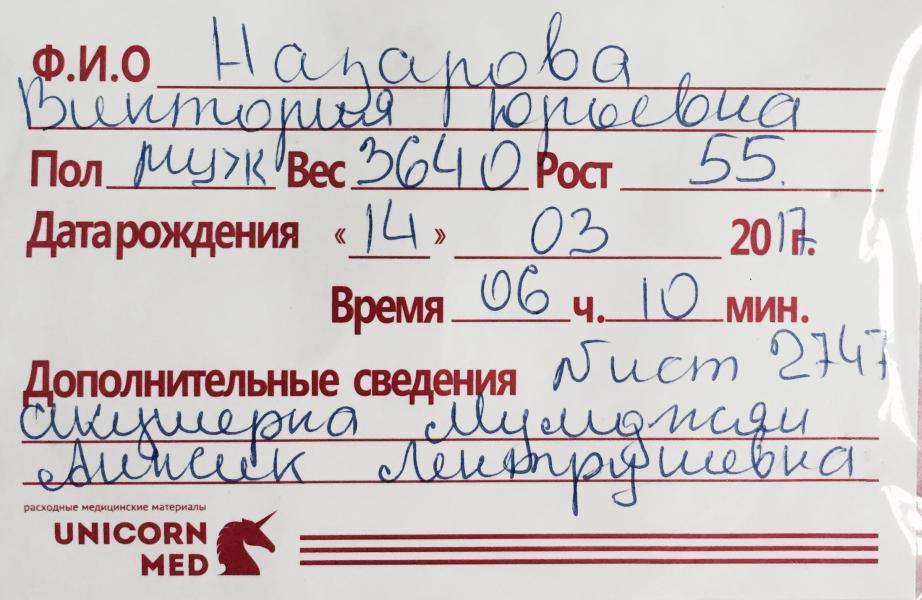 Ф.И.О Назарова
Виктория Юрьевна
Пол муж Вес 3640 Рост 55.
Дата рождения «14» 03 2017г.
Время 06 ч. 10 мин.
Дополнительные сведения Nист 2747
акушерка
Анжик
расходные медицинские материалы
UNICORN
MED